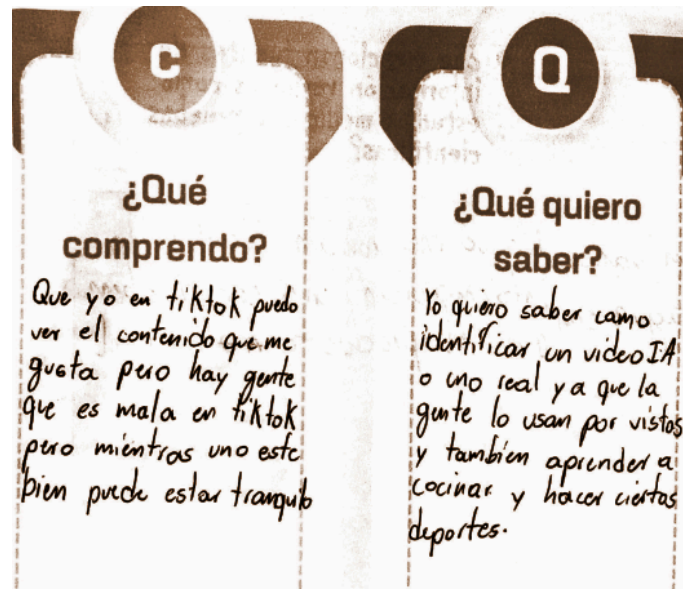 C
¿Qué
comprendo?
Que yo en tiktok puedo
ver el contenido que me
gusta pero hay gente
que es mala en tiktok
pero mientras uno este
bien puede estar tranquilo
Q
¿Qué quiero
saber?
Yo quiero saber como
identificar un video IA
o uno real ya que la
gente lo usan por vistas
y tambien aprender a
cocinar y hacer ciertos
deportes.